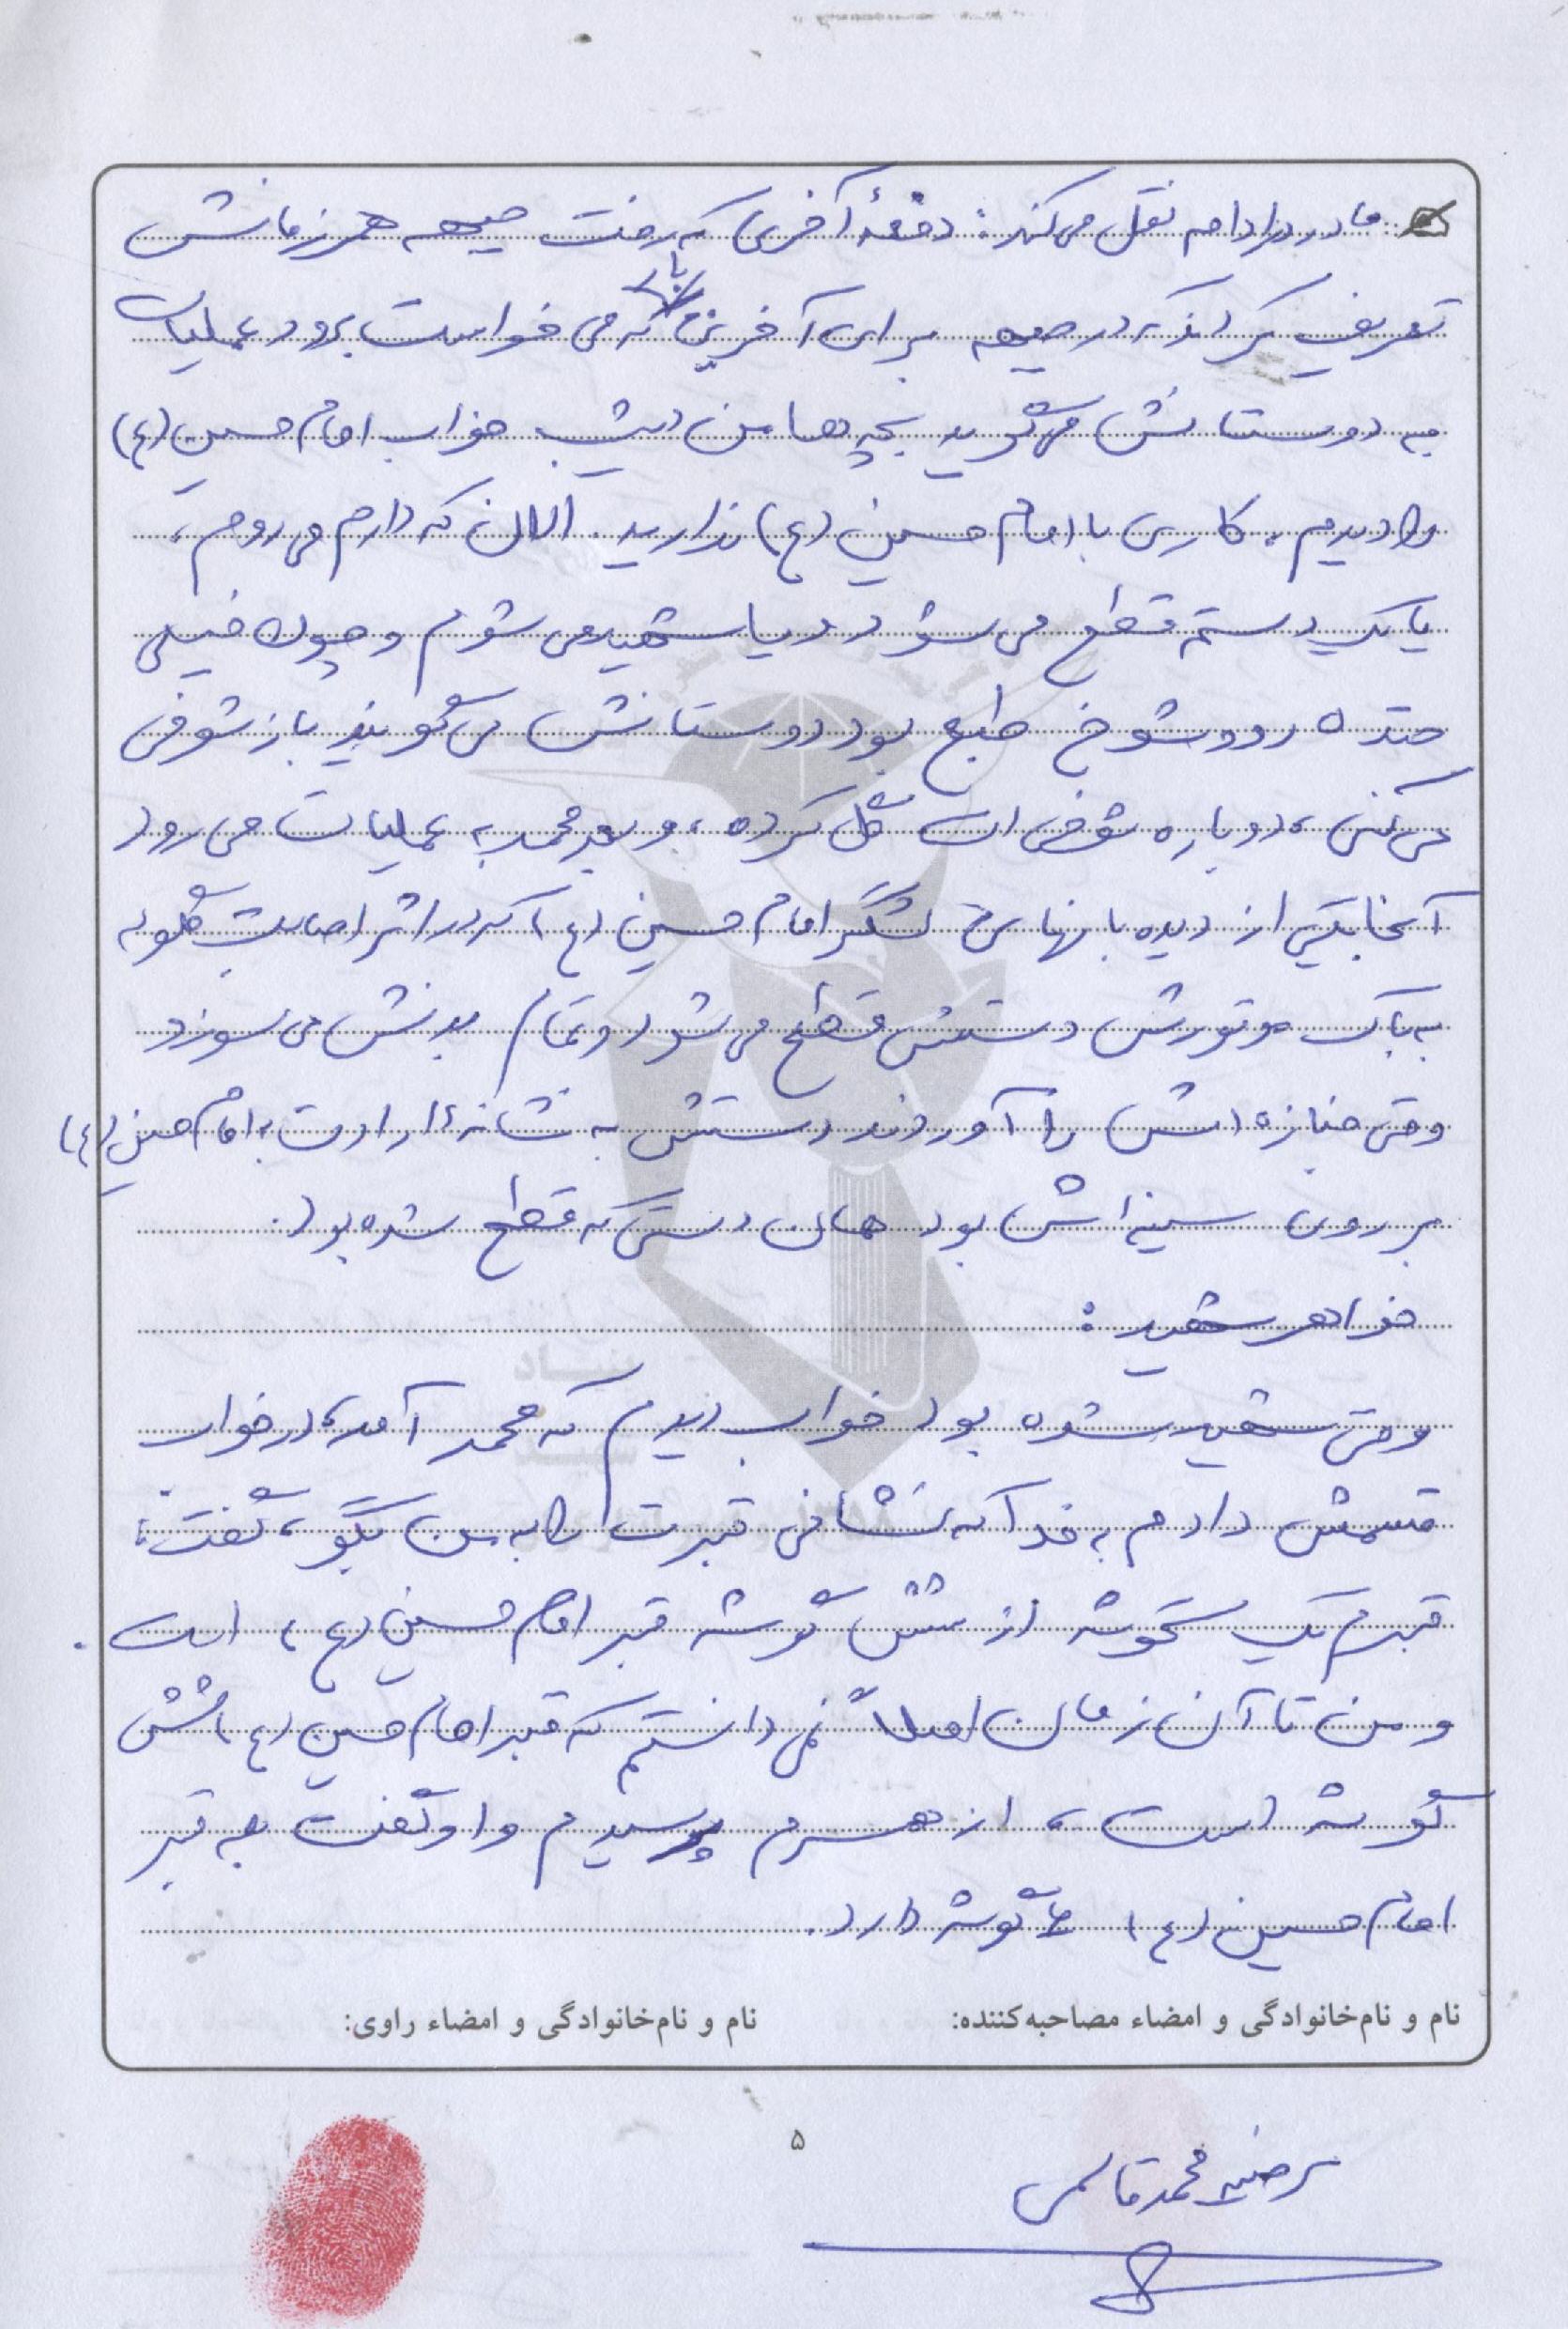 مادر در ادامه نقل می کند: دفعهٔ آخری که رفت جبهه همرزمانش
تعریف کردند که در جبهه برای آخرین بار که می خواست برود عملیات
به دوستانش می گوید بچه ها من دیشب خواب امام حسین (ع)
را دیدم، کاری با امام حسین (ع) ندارید. الان که دارم می روم،
یا یک دستم قطع می شود و یا شهید می شوم و چون خیلی
خنده رو و شوخ طبع بود دوستانش می گویند باز شوخی
می کنی، دوباره شوخی ات گل کرده، و بعد محمد به عملیات می رود
از دیده بانهای لشگر امام حسین (ع) که در اثر اصابت گلوله
به باک موتورش دستش قطع می شود و تمام بدنش می سوزد
وقتی جنازه اش را آوردند دستش به نشانهٔ ارادت به امام حسین (ع)
بر روی سینه اش بود همان دستی که قطع شده بود.
خواهر شهید:
وقتی شهید شده بود خواب دیدم که محمد آمده، در خواب
قسمش دادم به خدا که نشانی قبرت را به من بگو، گفت:
قبرم یک گوشه از شش گوشه قبر امام حسین (ع) است.
و من تا آن زمان اصلاً نمی دانستم که قبر امام حسین (ع) شش
گوشه است، از همسرم پرسیدم و او گفت بله قبر
امام حسین (ع) ۶ گوشه دارد.
نام و نام‌خانوادگی و امضاء مصاحبه‌کننده:
نام و نام‌خانوادگی و امضاء راوی:
۵
مرضیه محمدقاسمی